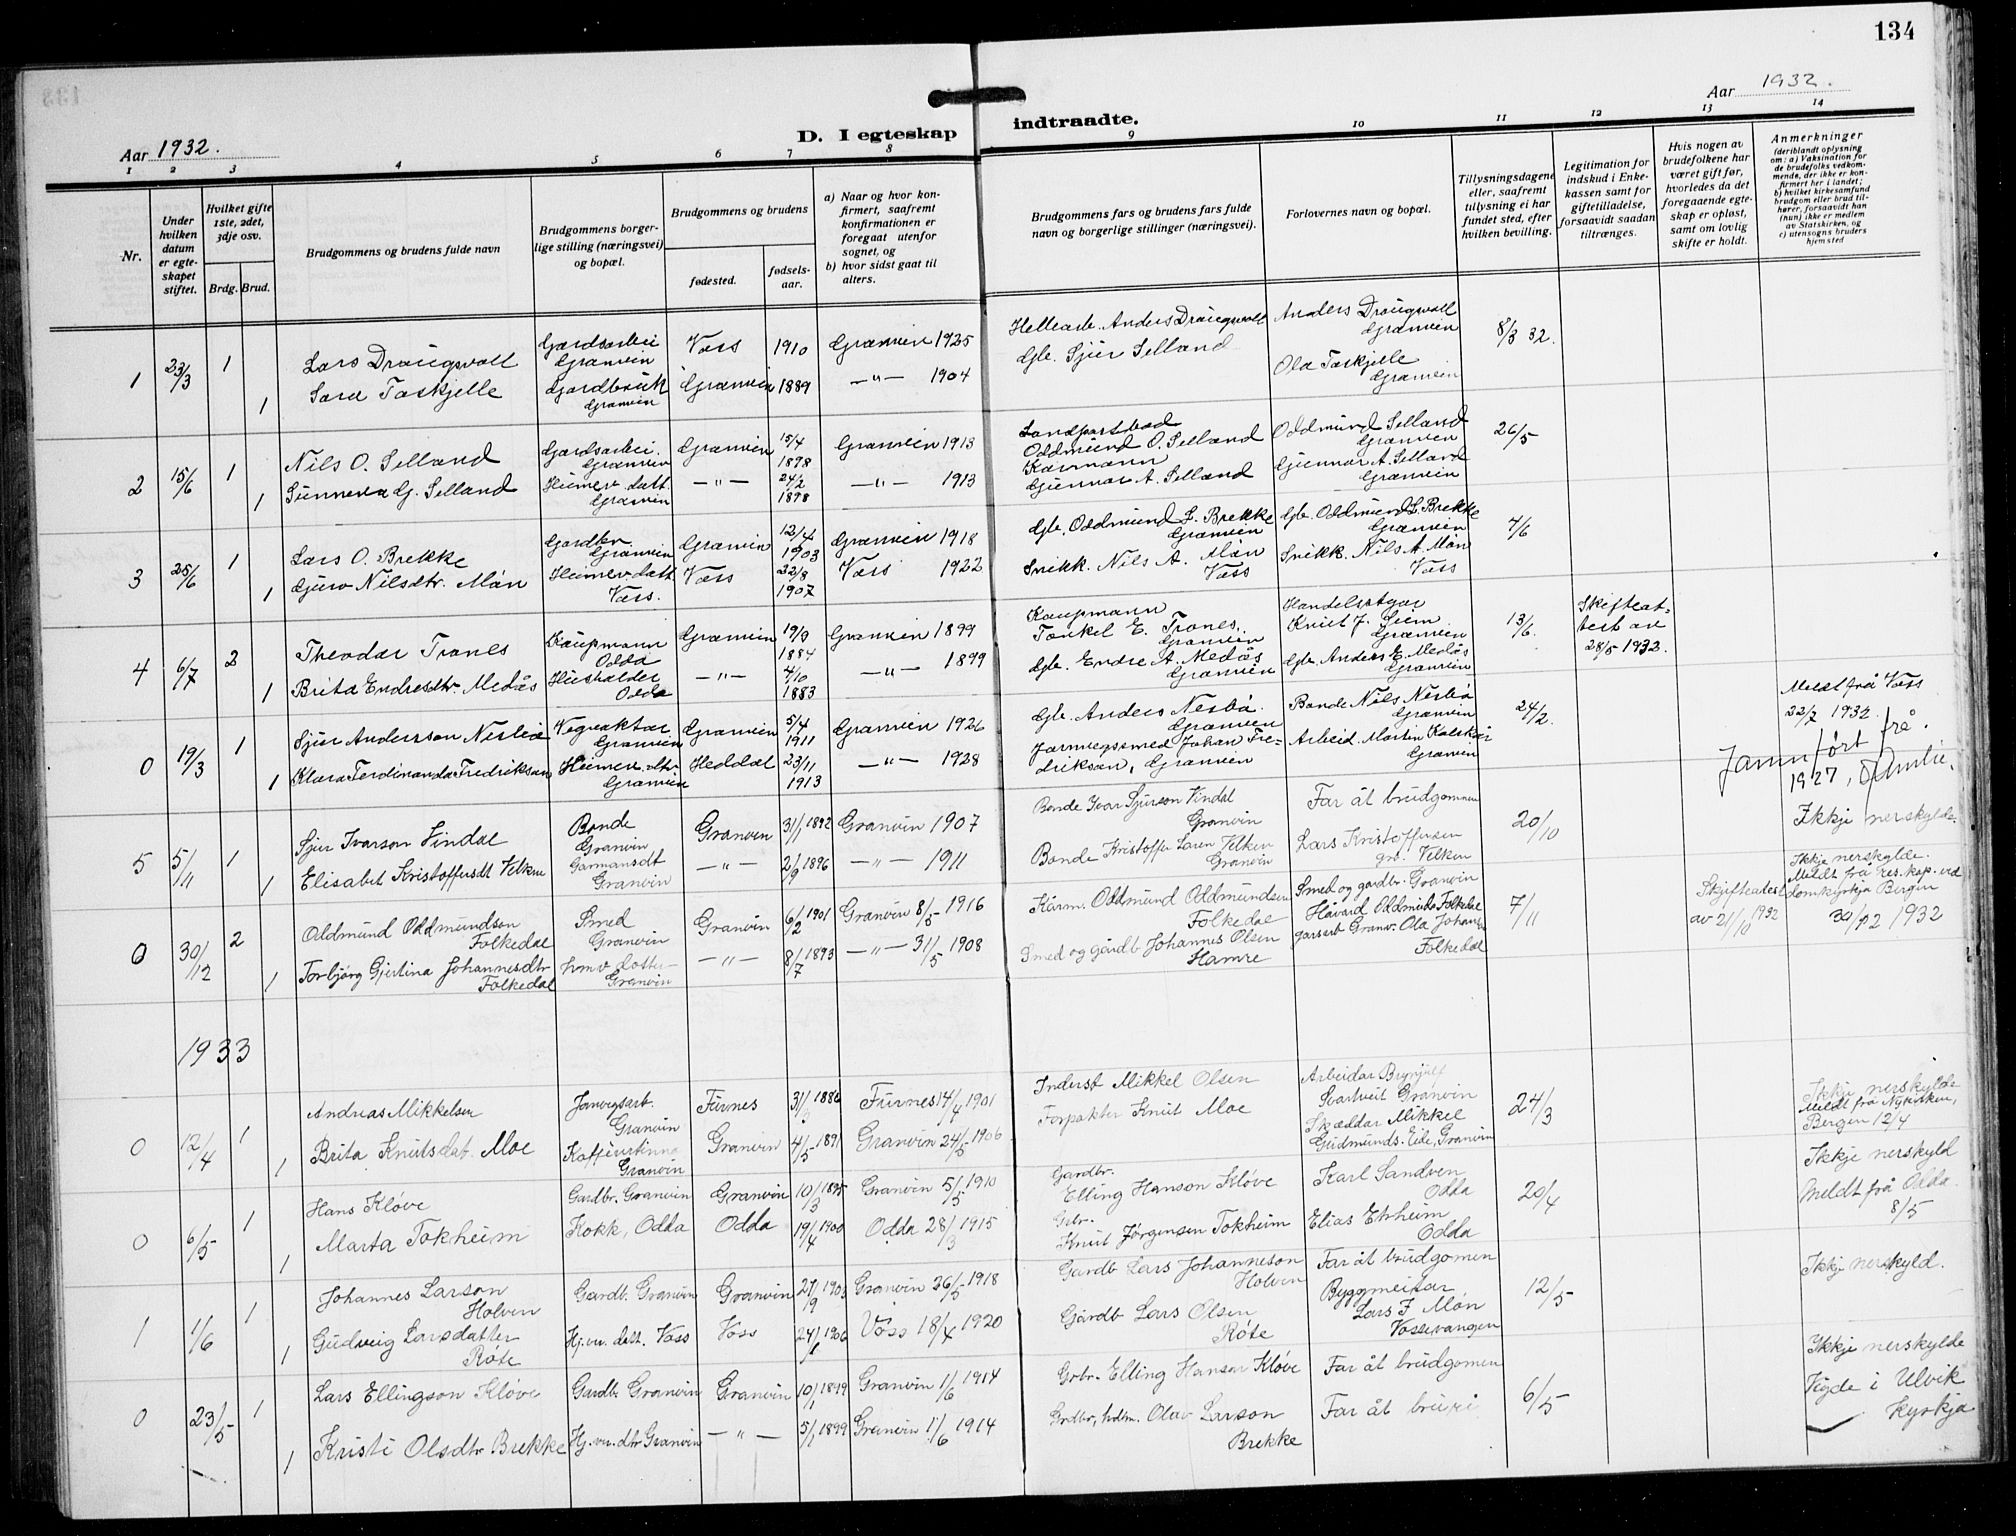 134
Aar 1932.
Aar 1932.
D. I egteskap indtraadte.
1 2 3 4 5 6 7 8 9 10 11 12 13 14
Nr.
Under hvilken datum er egteskapet stiftet.
Hvilket gifte 1ste, 2det, 3dje osv.
Brdg. Brud.
Brudgommens og brudens fulde navn
Brudgommens borgerlige stilling (næringsvei) og bopæl.
Brudgommens og brudens
fødested.
fødselsaar.
a) Naar og hvor konfirmert, saafremt konfirmationen er foregaat utenfor sognet, og
b) hvor sidst gaat til alters.
Brudgommens fars og brudens fars fulde navn og borgerlige stillinger (næringsvei).
Forlovernes navn og bopæl.
Tillysningsdagene eller, saafremt tillysning ei har fundet sted, efter hvilken bevilling.
Legitimation for indskud i Enkekassen samt for giftetilladelse, forsaavidt saadan tiltrænges.
Hvis nogen av brudefolkene har været gift før, hvorledes da det foregaaende egteskap er opløst, samt om lovlig skifte er holdt.
Anmerkninger
(deriblandt oplysning om: a) Vaksination for de brudefolks vedkommende, der ikke er konfirmert her i landet; b) hvilket kirkesamfund brudgom eller brud tilhører, forsaavidt han (hun) ikke er medlem av Statskirken, og c) utensogns bruders hjemsted
1 23/3 1 Lars Draugsvoll Gardsarbei Granvin Voss 1910 Granvin 1925 Anders Draugsvoll Anders Draugsvoll Granvin 8/3 32.
1 Sara Taskjelle Gardbruk Granvin Granvin 1889 —"— 1904 Gb. Sjur Selland Ola Taskjelle Granvin
2 15/6 1 Nils O. Selland Gardsarbei. Granvin Granvin 15/4 1898 Granvin 1913 Oddmund O. Selland Oddmund Selland Granvin 26/5
1 Sunneva G. Selland Heimev. datt. Granvin —"— 24/2 1898 —"— 1913 Gunnar A. Selland Gunnar A. Selland Granvin
3 25/6 1 Lars O. Brekke Gardbr. Granvin Granvin 12/4 1903 Granvin 1918 Gb. Oddmund L. Brekke Granvin Gb. Oddmund L. Brekke Granvin 7/6
1 Guro Nilsdtr. Møn Heimev. datt. Voss. Voss 22/8 1907 Voss 1922 Snikk. Nils A. Møn Voss Snikk. Nils A. Møn Voss
4 6/7 2 Theodor Trones Kaupmann Odda Granvin 19/9 1884 Granvin 1899 Kaupmann Torkel E. Trones. Granvin Knut J. Seim Granvin 13/6. Skifteattest av 28/5 1932.
1 Brita Endresdtr. Medås Hushalder Odda —"— 4/10 1883 —"— 1899 Gb. Endre A. Medås Granvin Gb. Anders E. Medås Granvin
0 19/3 1 Sjur Anderson Nesbø Vegvaktar Granvin Granvin 5/4 1911 Granvin 1926 Gb. Anders Nesbø. Granvin Bonde Nils Nesbø Granvin 24/2. Meldt frå Voss 22/7 1932.
1 Klara Ferdinanda Fredriksen Heimev. dtr Granvin Heddal 23/11 1913 —"— 1928 Jarnvegssmed Johan Fredriksen, Granvin Arbeid. Martin Granvin
Jamnført frå 1927,
5 5/11 1 Sjur Ivarson Vindal Bonde Granvin Granvin 31/1 1892 Granvin 1907 Bonde Ivar Sjurson Vindal Granvin Far åt brudgommen 20/10 Ikkje nerskylde.
1 Elisabet Kristoffersdt Velken Garmansdt Granvin —"— 2/9 1896 —"— 1911 Bonde Kristoffer Larsen Velken Granvin Lars Kristoffersen Velken
0 30/12 2 Oddmund Oddmundson Folkedal Smed Granvin Granvin 6/2 1901 Granvin 8/5 1916 Kårm. Oddmund Oddmundsen Folkedal Smed og gardbr. Granvin Håvard Oddmunds Folkedal 7/11 Skifteattest av 21/10 1932 Ikkje nerskylde. Meldt frå res. kap. ved domkyrkja Bergen 30/12 1932
1 Torbjørg Gjertina Johannesdtr Folkedal hmv. dotter Granvin —"— 8/7 1893 —"— 31/5 1908 Smed og gårdb Johannes Olsen Hamre Ola Johans Folkedal
1933
0 12/4 1 Andreas Mikkelsen Jarnvegsarb. Granvin Furnes 31/3 1886 Furnes 14/4 1901 Inderst Mikkel Olsen Arbeidar Brynjulf Granvin 24/3 Ikkje nerskylde Meldt frå Nykirken, Bergen 12/4
1 Brita Knutsdat. Moe Granvin Granvin 4/5 1891 Granvin 24/5 1906 Forpakter Knut Moe Skræddar Mikkel Gudmunds. Eide, Granvin
0 6/5 1 Hans Kløve Gardbr. Granvin Granvin 10/3 1895 Granvin 5/5 1910 Gardbr. Elling Hanson Kløve Karl Sandven Odda 20/4 Ikkje nerskyld Meldt frå Odda 8/5
1 Marta Tokheim Kokk, Odda Odda 19/4 1900 Odda 28/3 1915 Grbr. Knut Jørgensen Tokheim Elias Eitrheim Odda
1 1/6 1 Johannes Larson Holven Gardb. Granvin Granvin 27/9 1903 Granvin 26/5 1918 Gardb Lars Johanneson Holven Far åt brudgomen 12/5 Ikkje nerskyld.
1 Gudveig Larsdatter Røte Hj.vu. datt. Voss Voss 24/6 1906 Voss 18/4 1920 Gårdb Lars Olsen Røte Byggmeistar Lars J Møn Vossevangen
0 23/5 1 Lars Ellingson Kløve Gardbr Granvin Granvin 10/1 1899 Granvin 1/6 1914 Grbr. Elling Hanson Kløve Far åt brudgomen 6/5 Ikkje nerskylde Vigde i Ulvik kyrkja
1 Kristi Olsdtr Brekke Hj.vu.dtr Granvin —"— 5/1 1899 Granvin 1/6 1914 Grdbr, Olav Larson Brekke Far åt bruri